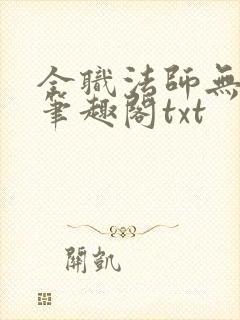 全職法師無
筆趣閣txt
開凱